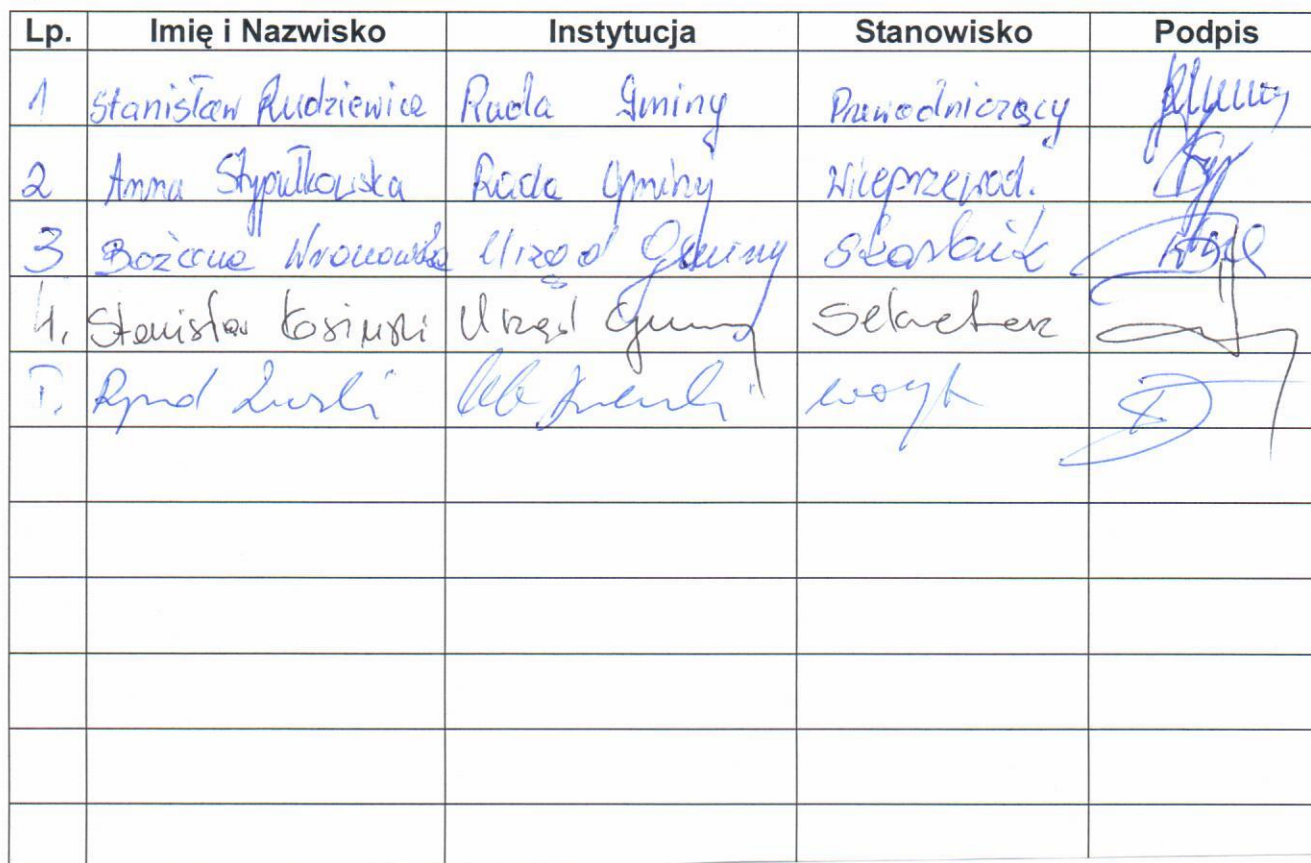 Lp. Imię i Nazwisko Instytucja Stanowisko Podpis
1 Stanisław Rudziewicz Rada Gminy Przewodniczący
2 Anna Stypułkowska Rada Gminy Wiceprzewod.
3 Bożena Wronowska Urząd Gminy Skarbnik
4. Stanisław Kosiński Urząd Gminy Sekretarz